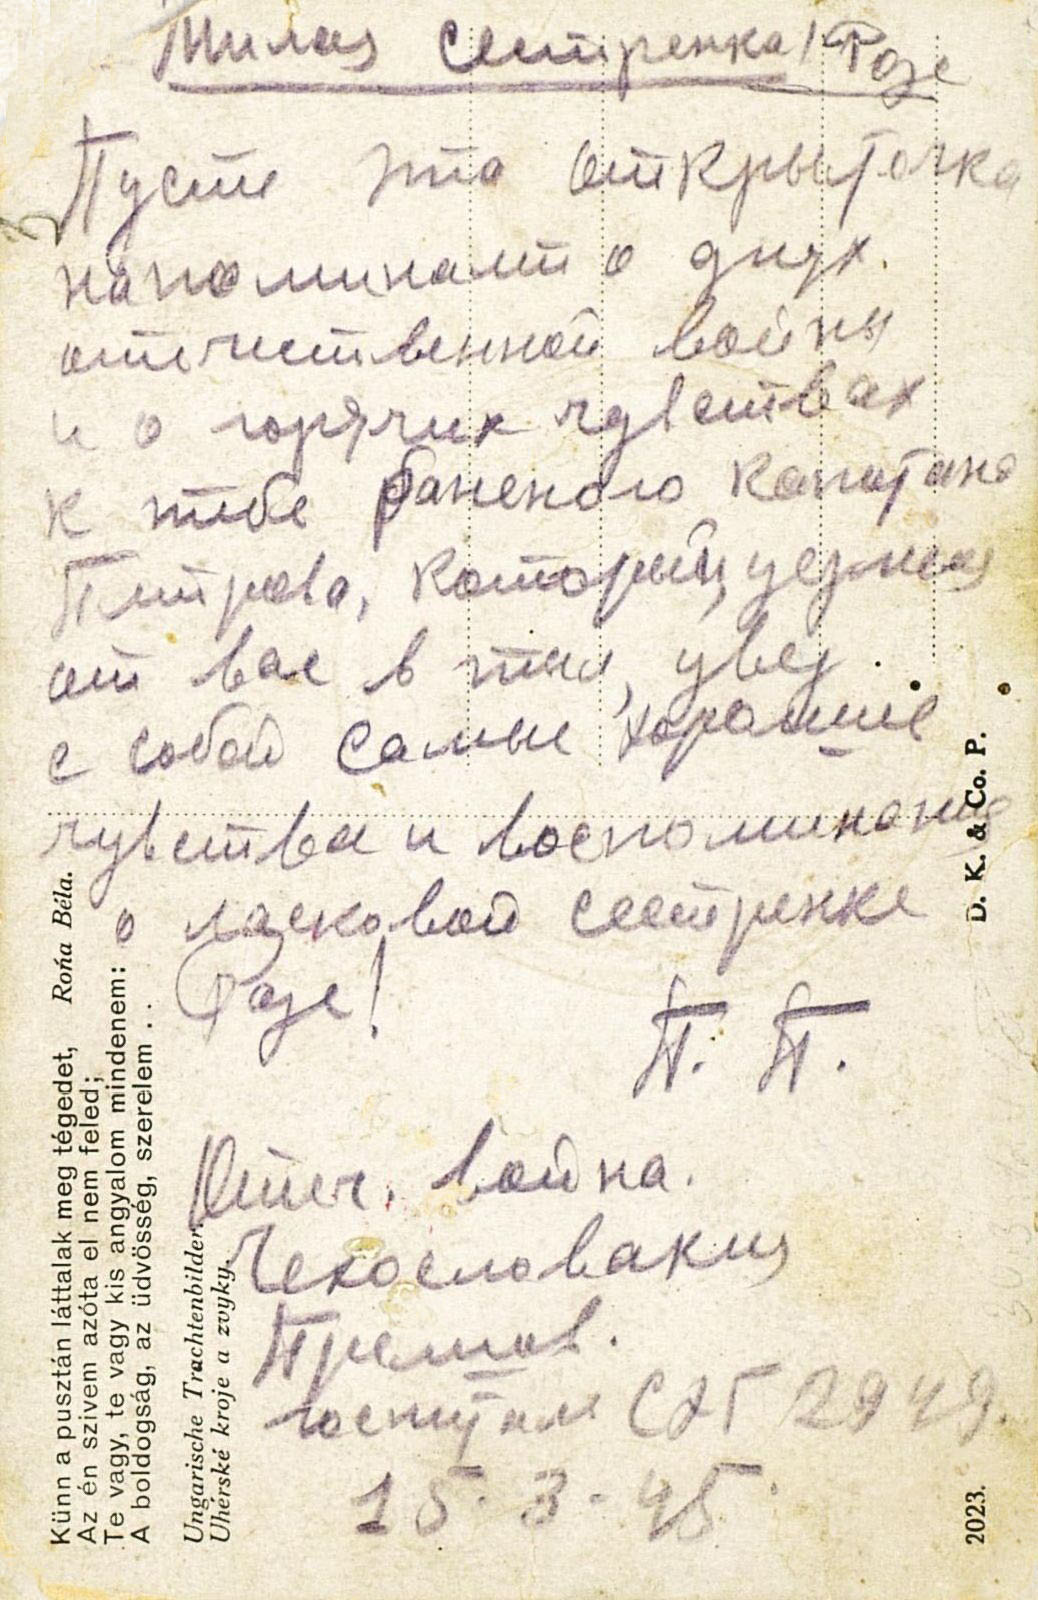 Милая сестренка! Розе
Пусть эта открыточка
напоминает о днях
отечественной войны
и о горячих чувствах
к тебе раненого капитана
Петрова, который уезжая
от вас в тыл, увез
с собой самые хорошие
чувства и воспоминания
о ласковой сестренке
Розе!
П. П.
Отеч. война.
Чехословакия
Прешов.
госпиталь СЭГ 2949.
15.3-45.
Künn a pusztán láttalak meg tégedet,
Az én szivem azóta el nem feled;
Te vagy, te vagy kis angyalom mindenem:
A boldogság, az üdvösség, szerelem . .
Roňa Béla.
Ungarische Trachtenbilder.
Uherské kroje a zvyky.
D. K. & Co. P.
2023.